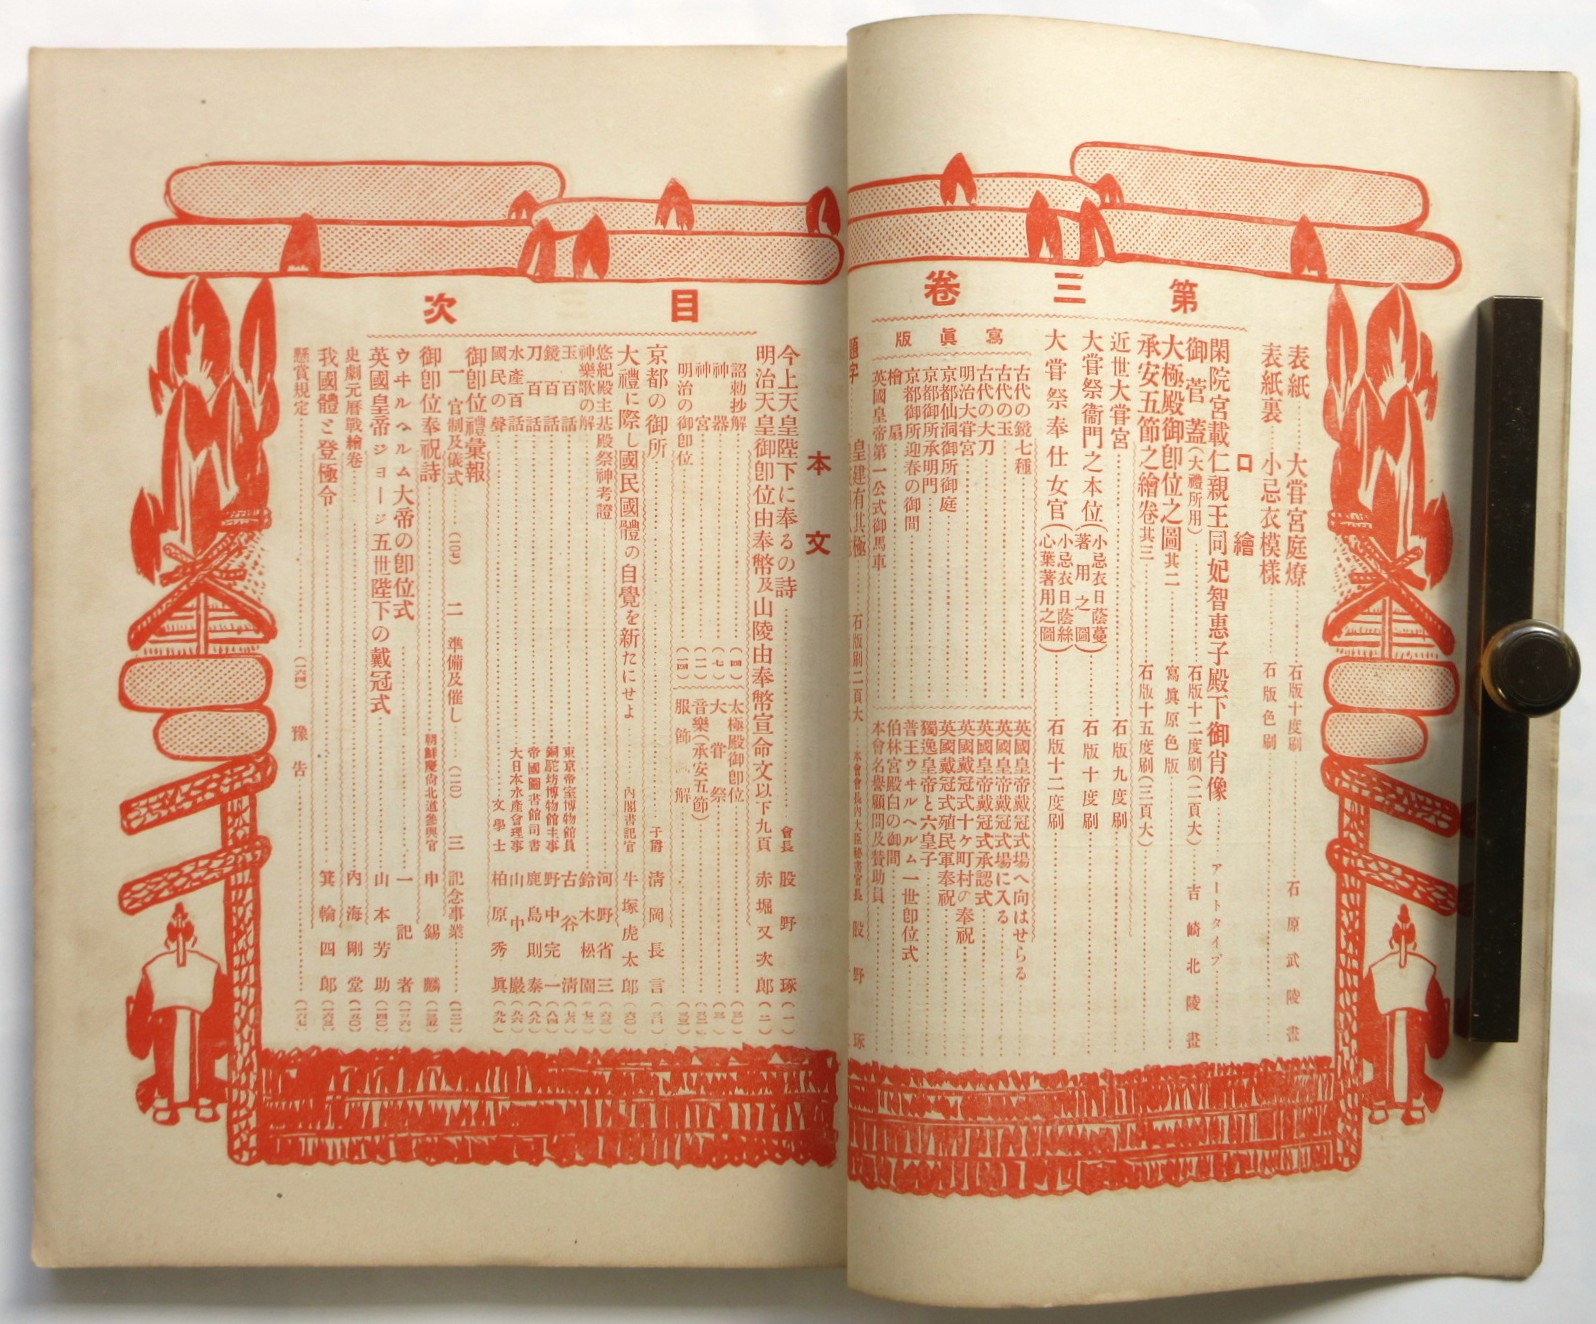 第三卷
目次
表紙 大嘗宮庭燎 石版十度刷 石原武陵畫
表紙裏 小忌衣模樣 石版色刷
口繪
閑院宮載仁親王同妃智惠子殿下御肖像 アートタイプ
御菅蓋(大禮所用) 石版十二度刷(二頁大) 吉崎北陵畫
大極殿御卽位之圖其二 寫眞原色版
承安五節之繪卷其三 石版十五度刷(三頁大)
近世大嘗宮 石版九度刷
大嘗祭衞門之本位(小忌衣日蔭蔓著用之圖) 石版十度刷
大嘗祭奉仕女官(小忌衣日蔭絲心葉著用之圖) 石版十二度刷
寫眞版
古代の鏡七種
古代の玉
古代の大刀
明治大嘗宮
京都仙洞御所御庭
京都御所承明門
京都御所迎春の御間
檜扇
英國皇帝第一公式御馬車
英國皇帝戴冠式場へ向はせらる
英國皇帝戴冠式場に入る
英國皇帝戴冠式承認式
英國戴冠式十ヶ町村の奉祝
英國戴冠式殖民軍奉祝
獨逸皇帝と六皇子
普王ウヰルヘルム一世卽位式
伯林宮殿白の御間
本會名譽顧問及贊助員
題字 皇建有其極 石版刷二頁大 股野琢
本文
今上天皇陛下に奉るの詩 會長 股野琢 (一)
明治天皇御卽位由奉幣及山陵由奉幣宣命文以下九頁 赤堀又次郎 (二)
詔勅抄解 (四)
神器 (七)
神宮 (一一)
明治の御卽位 (一四)
太極殿御卽位
大嘗祭
音樂(承安五節)
服飾解
京都の御所 子爵 淸岡長言
大禮に際し國民國體の自覺を新たにせよ 內閣書記官 牛塚虎太郎 (六〇)
悠紀殿主基殿祭神考證 河野省三
神樂歌の解 鈴木松園
玉百話 東京帝室博物館員 古谷淸
鏡百話 野中完一 (八四)
刀百話 帝國圖書館司書 鹿島則泰 (八九)
水產百話 大日本水產會理事 山中巖 (九六)
國民の聲 文學士 柏原秀眞 (九九)
御卽位禮彙報
一 官制及儀式 (一〇四) 二 準備及催し (一一〇) 三 記念事業
御卽位奉祝詩 朝鮮慶尙北道參與官 申錫麟
ウヰルヘルム大帝の卽位式 一記者
英國皇帝ジョージ五世陛下の戴冠式 山本芳助 (一四〇)
史劇元曆戰繪卷 內海剛堂 (一五〇)
我國體と登極令 箕輪四郎
懸賞規定 (一六四) 豫告